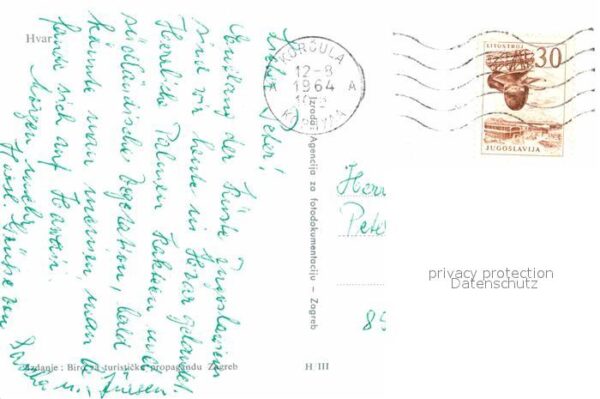 Hvar
Lieber Peter!
Entlang der Küste Jugoslawiens
sind wir heute in Hvar gelandet.
Herrliche Palmen, Kakteen und
südländische Vegetation, bald
könnte man meinen, man
fände sich auf Hawaii.
Morgen mehr,
Herzl. Grüße von
u.
Izdanje: Biro za turističku propagandu Zagreb
H III
Izradba: Agencija za fotodokumentaciju – Zagreb
KORČULA
12-8
1964
A A
KORČULA
LITOSTROJ
30
JUGOSLAVIJA
Herr
Pete
85
privacy protection
Datenschutz